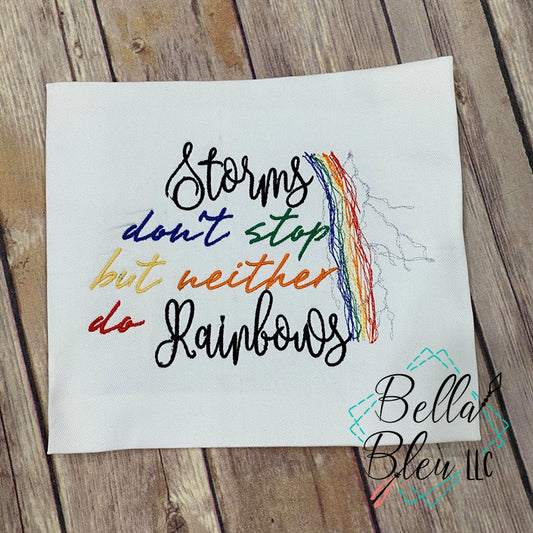 Storms
don't stop
but neither
do Rainbows
Bella
Bleu LLC